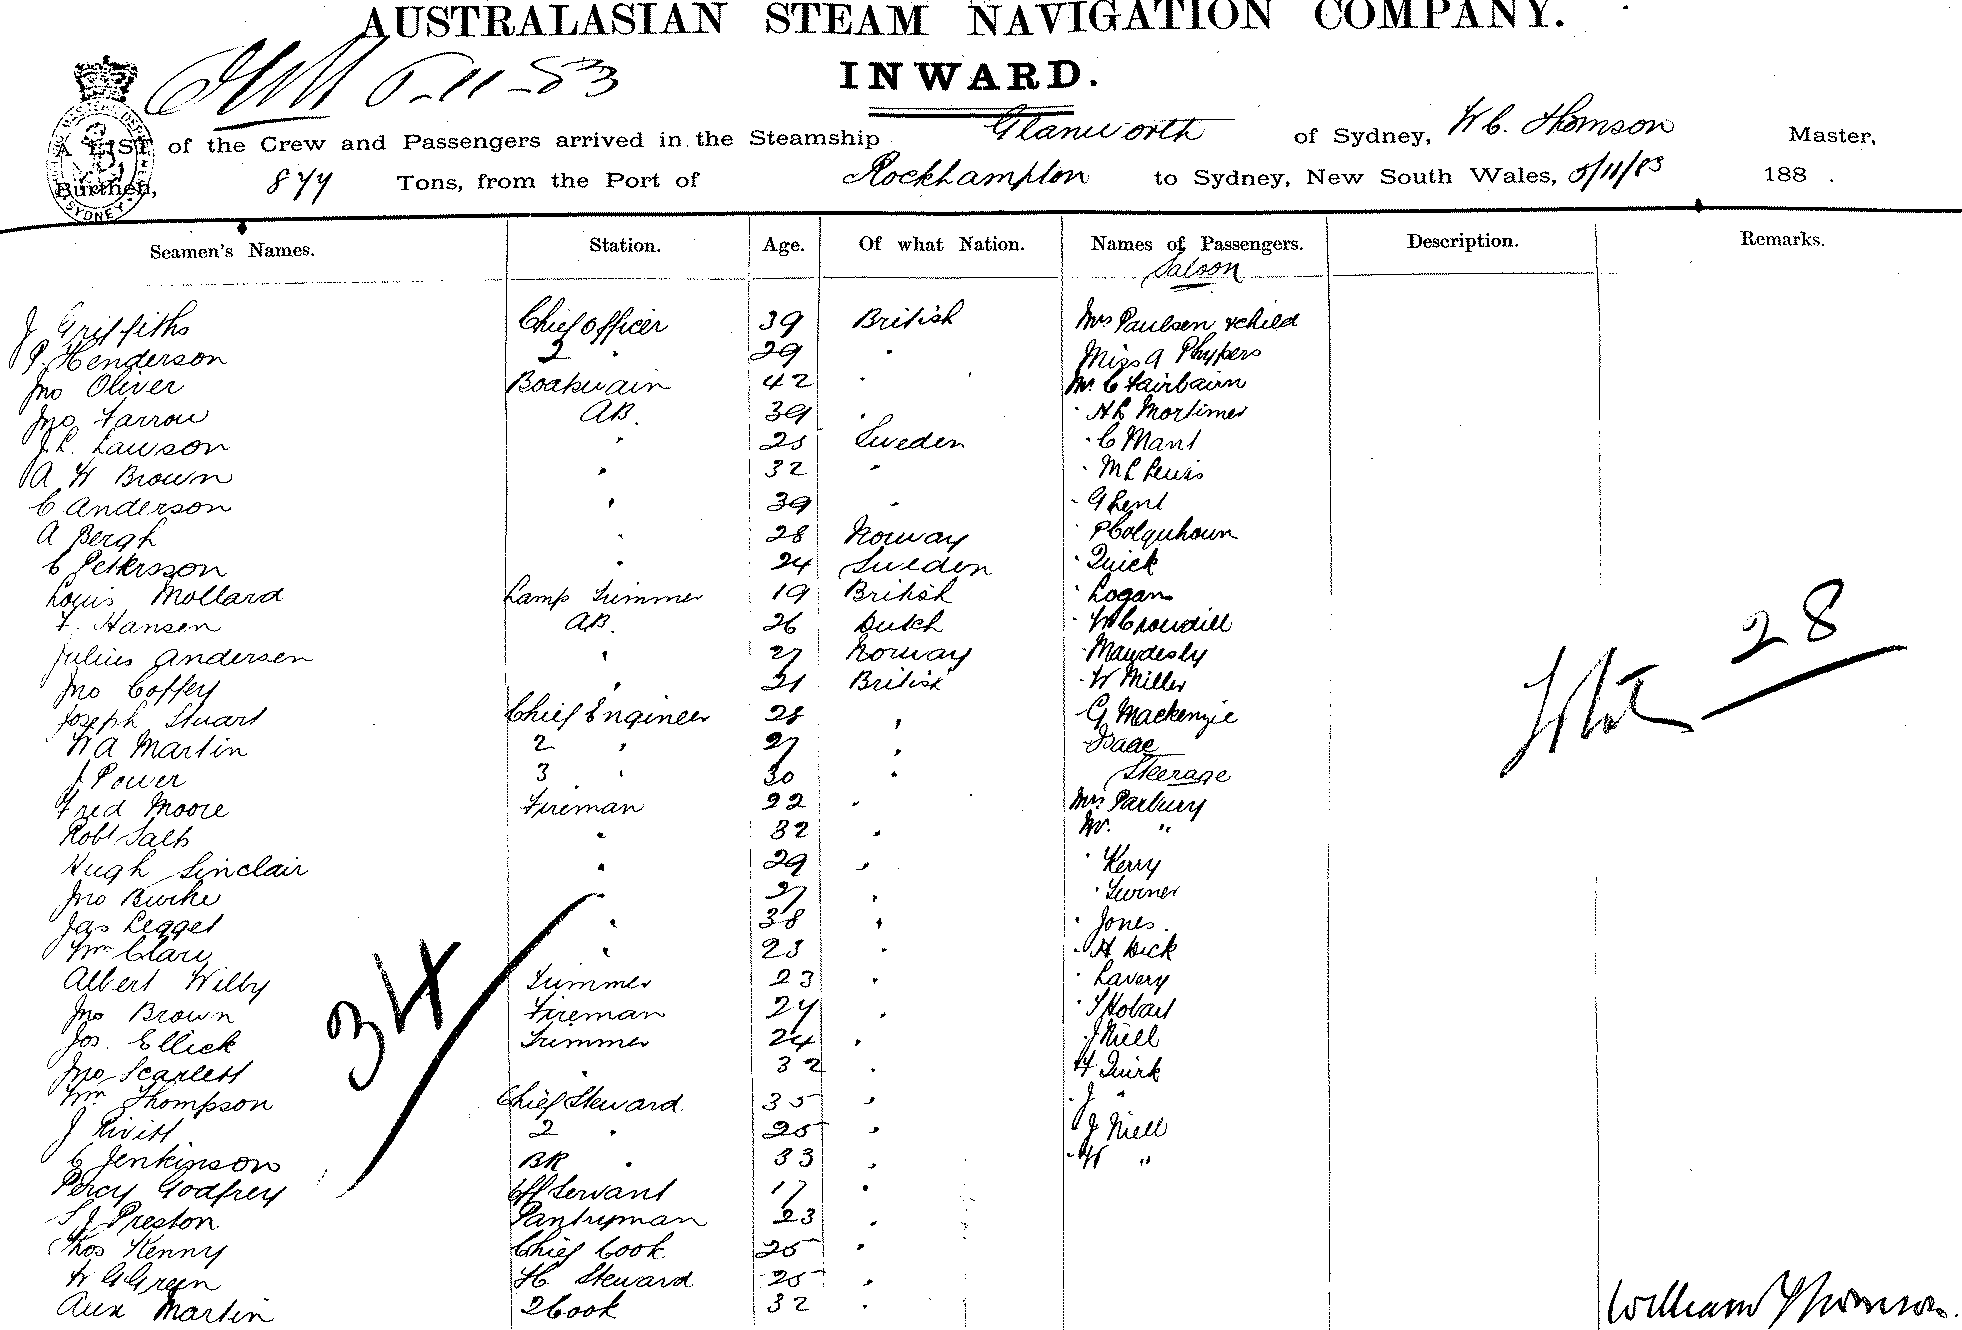 AUSTRALASIAN STEAM NAVIGATION COMPANY.
5-11-83 INWARD.
A LIST of the Crew and Passengers arrived in the Steamship Glanworth of Sydney, W C. Thomson Master,
Burthen, 877 Tons, from the Port of Rockhampton to Sydney, New South Wales, 5/11/83 188 .
SYDNEY
Seamen's Names. Station. Age. Of what Nation. Names of Passengers. Description. Remarks.
Saloon
J Griffiths Chief Officer 39 British Mrs Paulsen & child
P Henderson 2 " 29 " Miss A Phypers
Jno Oliver Boatswain 42 " Mr C Fairbairn
Jno Farrow AB. 39 " " H L Mortimer
J L. Lawson " 25 Sweden " C Mant
A W Brown " 32 " " M L Lewis
C Anderson " 39 " " G Lent
A Bergh " 28 Norway " P Colquhoun
C Petersson " 24 Sweden " Quick
Louis Mollard Lamp Trimmer 19 British " Logan
F. Hansen AB. 26 Dutch " W Crowdill
Julius Andersen " 27 Norway " Maudesly
Jno Coffey " 21 British " W Miller
28
Total
Joseph Stuart Chief Engineer 28 " G Mackenzie
W A Martin 2 " 27 " " Isaac
J Power 3 " 30 " Steerage
Fred Moore Fireman 22 " Mrs Parbury
Robt Salt " 32 " Mr. "
Hugh Sinclair " 29 " " Kerry
Jno Burke " 27 " " Turner
Jas Legget " 38 " " Jones.
Wm Clary " 23 " " H Dick
Albert Wilby Trimmer 23 " " Lavery
34
Jno Brown Fireman 27 " " T Hobart
Jos. Ellick Trimmer 24 " " J Niell
Jno Scarlett " 32 " H Quirk
Wm Thompson Chief Steward 35 " " J "
J Rivitt 2 " 25 " J Niell
C Jenkinson BR " 33 " " W "
Percy Godfrey Off Servant 17 "
S J Preston Pantryman 23 "
Thos Kenny Chief Cook 25 "
W G Green FC Steward 25 "
Alex Martin 2 Cook 32 "
William Thomson.